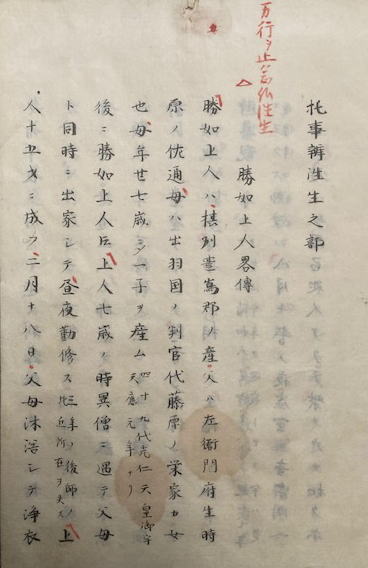 万行ヲ止念仏往生
托事辨往生之部
勝如上人畧傳
勝如上人ハ摂別嶌郡ノ産父ハ左衛門府生時
原ノ佐通母ハ出羽国ノ判官代藤原ノ栄家カ女
也母年廿七歳ニ一子ヲ産ム四十九代光仁天皇御宇
天應元年ナリ
後ニ勝如上人ト上人七歳ノ時異僧ニ遇テ父母
ト同時ニ出家シテ昼夜勤修ス三年ノ後師ノ
近所在ヲ失ス上
人十五才ニ成フ二月十八日父母沐浴シテ浄衣